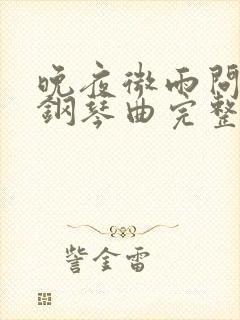 晚夜微雨問
鋼琴曲完整
訾金雷